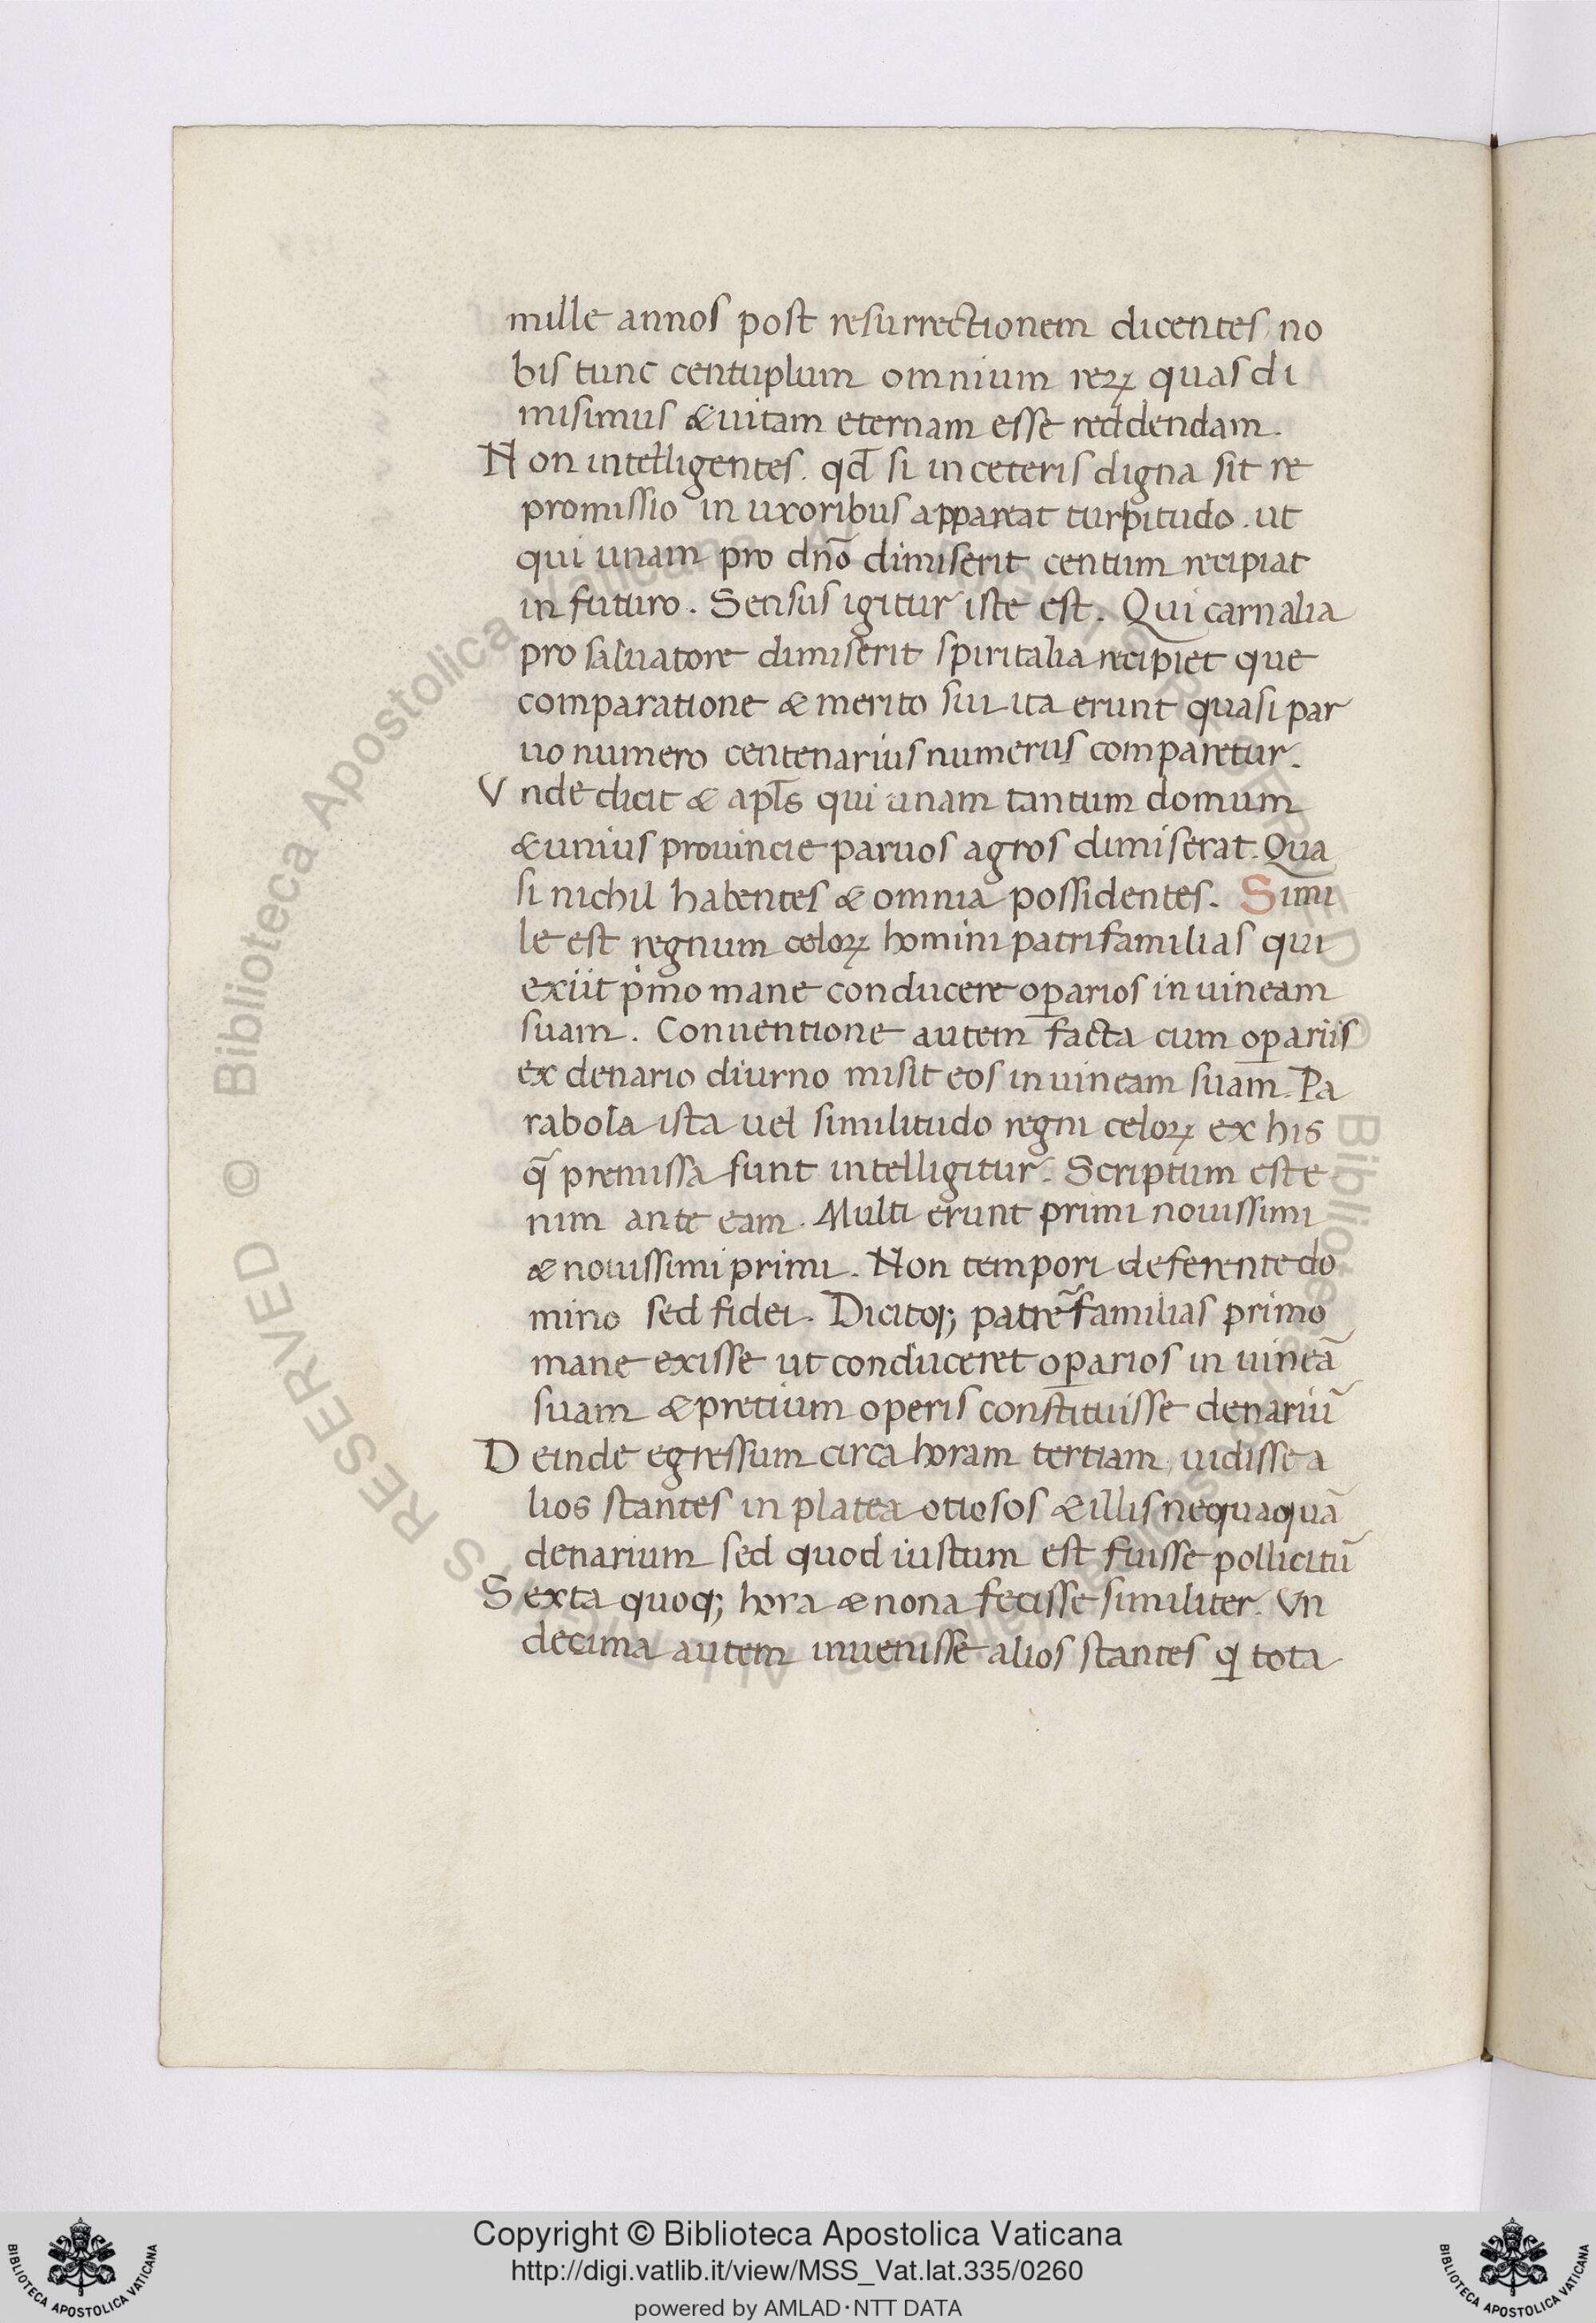 mille annos post resurrectionem dicentes no
bis tunc centuplum omnium reꝝ quas di
misimus & uitam eternam esse reddendam.
Non intelligentes. qđ si in ceteris digna sit re
promissio in uxoribus appareat turpitudo. ut
qui unam pro dño dimiserit centum recipiat
in futuro. Sensus igitur iste est. Qui carnalia
pro saluatore dimiserit spiritalia recipiet que
comparatione & merito sui ita erunt quasi par
uo numero centenarius numerus comparetur.
Vnde dicit & apl̄s qui unam tantum domum
& unius prouincie paruos agros dimiserat. Qua
si nichil habentes & omnia possidentes. Simi
le est regnum celoꝝ homini patrifamilias qui
exiit pⁱmo mane conducere oꝑarios in uineam
suam. Conuentione autem facta cum oꝑariis
ex denario diurno misit eos in uineam suam. Pa
rabola ista uel similitudo regni celoꝝ ex his
q̄ premissa sunt intelligitur. Scriptum est e
nim ante eam. Multi erunt primi nouissimi
& nouissimi primi. Non tempori deferente do
mino sed fidei. Dicitq; patrē familias primo
mane exisse ut conduceret oꝑarios in uineā
suam & pretium operis constituisse denariū
Deinde egressum circa horam tertiam uidisse a
lios stantes in platea otiosos & illis nequaquā
denarium sed quod iustum est fuisse pollicitū
Sexta quoq; hora & nona fecisse similiter. Vn
decima autem inuenisse alios stantes ꝗ tota
Copyright © Biblioteca Apostolica Vaticana
http://digi.vatlib.it/view/MSS_Vat.lat.335/0260
powered by AMLAD·NTT DATA
BIBLIOTECA APOSTOLICA VATICANA
BIBLIOTECA APOSTOLICA VATICANA